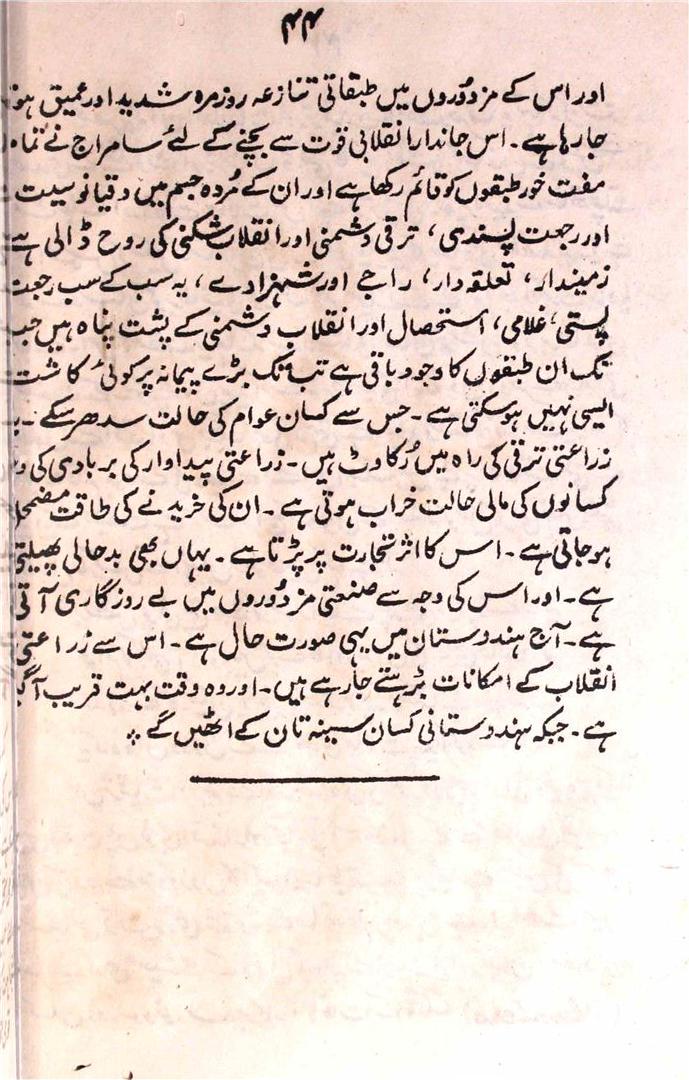 ۴۴
اور اس کے مزدوروں میں طبقاتی تنازعہ روزمرہ شدید اور عمیق ہو
جا رہا ہے۔ اس جاندار انقلابی قوت سے بچنے کے لئے سامراج نے تما
مفت خور طبقوں کو قائم رکھا ہے اور ان کے مُردہ جسم میں دقیانوسیت
اور رجعت پسندی، ترقی دشمنی اور انقلاب شکنی کی روح ڈالی ہے
زمیندار، تعلقہ دار، راجے اور شہزادے، یہ سب کے سب رجعت
پستی، غلامی، استحصال اور انقلاب دشمنی کے پشت پناہ ہیں جب
تک ان طبقوں کا وجود باقی ہے تب تک بڑے پیمانہ پر کوئی کاشت
ایسی نہیں ہو سکتی ہے۔ جس سے کسان عوام کی حالت سدھر سکے۔
زراعتی ترقی کی راہ میں رُکاوٹ ہیں۔ زراعتی پیداوار کی بربادی کی و
کسانوں کی مالی حالت خراب ہوتی ہے۔ ان کی خریدنے کی طاقت مضمحل
ہو جاتی ہے۔ اس کا اثر تجارت پر پڑتا ہے۔ یہاں بھی بدحالی پھیلتی
ہے۔ اور اس کی وجہ سے صنعتی مزدوروں میں بے روزگاری آتی
ہے۔ آج ہندوستان میں یہی صورت حال ہے۔ اس سے زراعتی
انقلاب کے امکانات بڑہتے جا رہے ہیں۔ اور وہ وقت بہت قریب آ گیا
ہے۔ جبکہ ہندوستانی کسان سینہ تان کے اٹھیں گے ؞